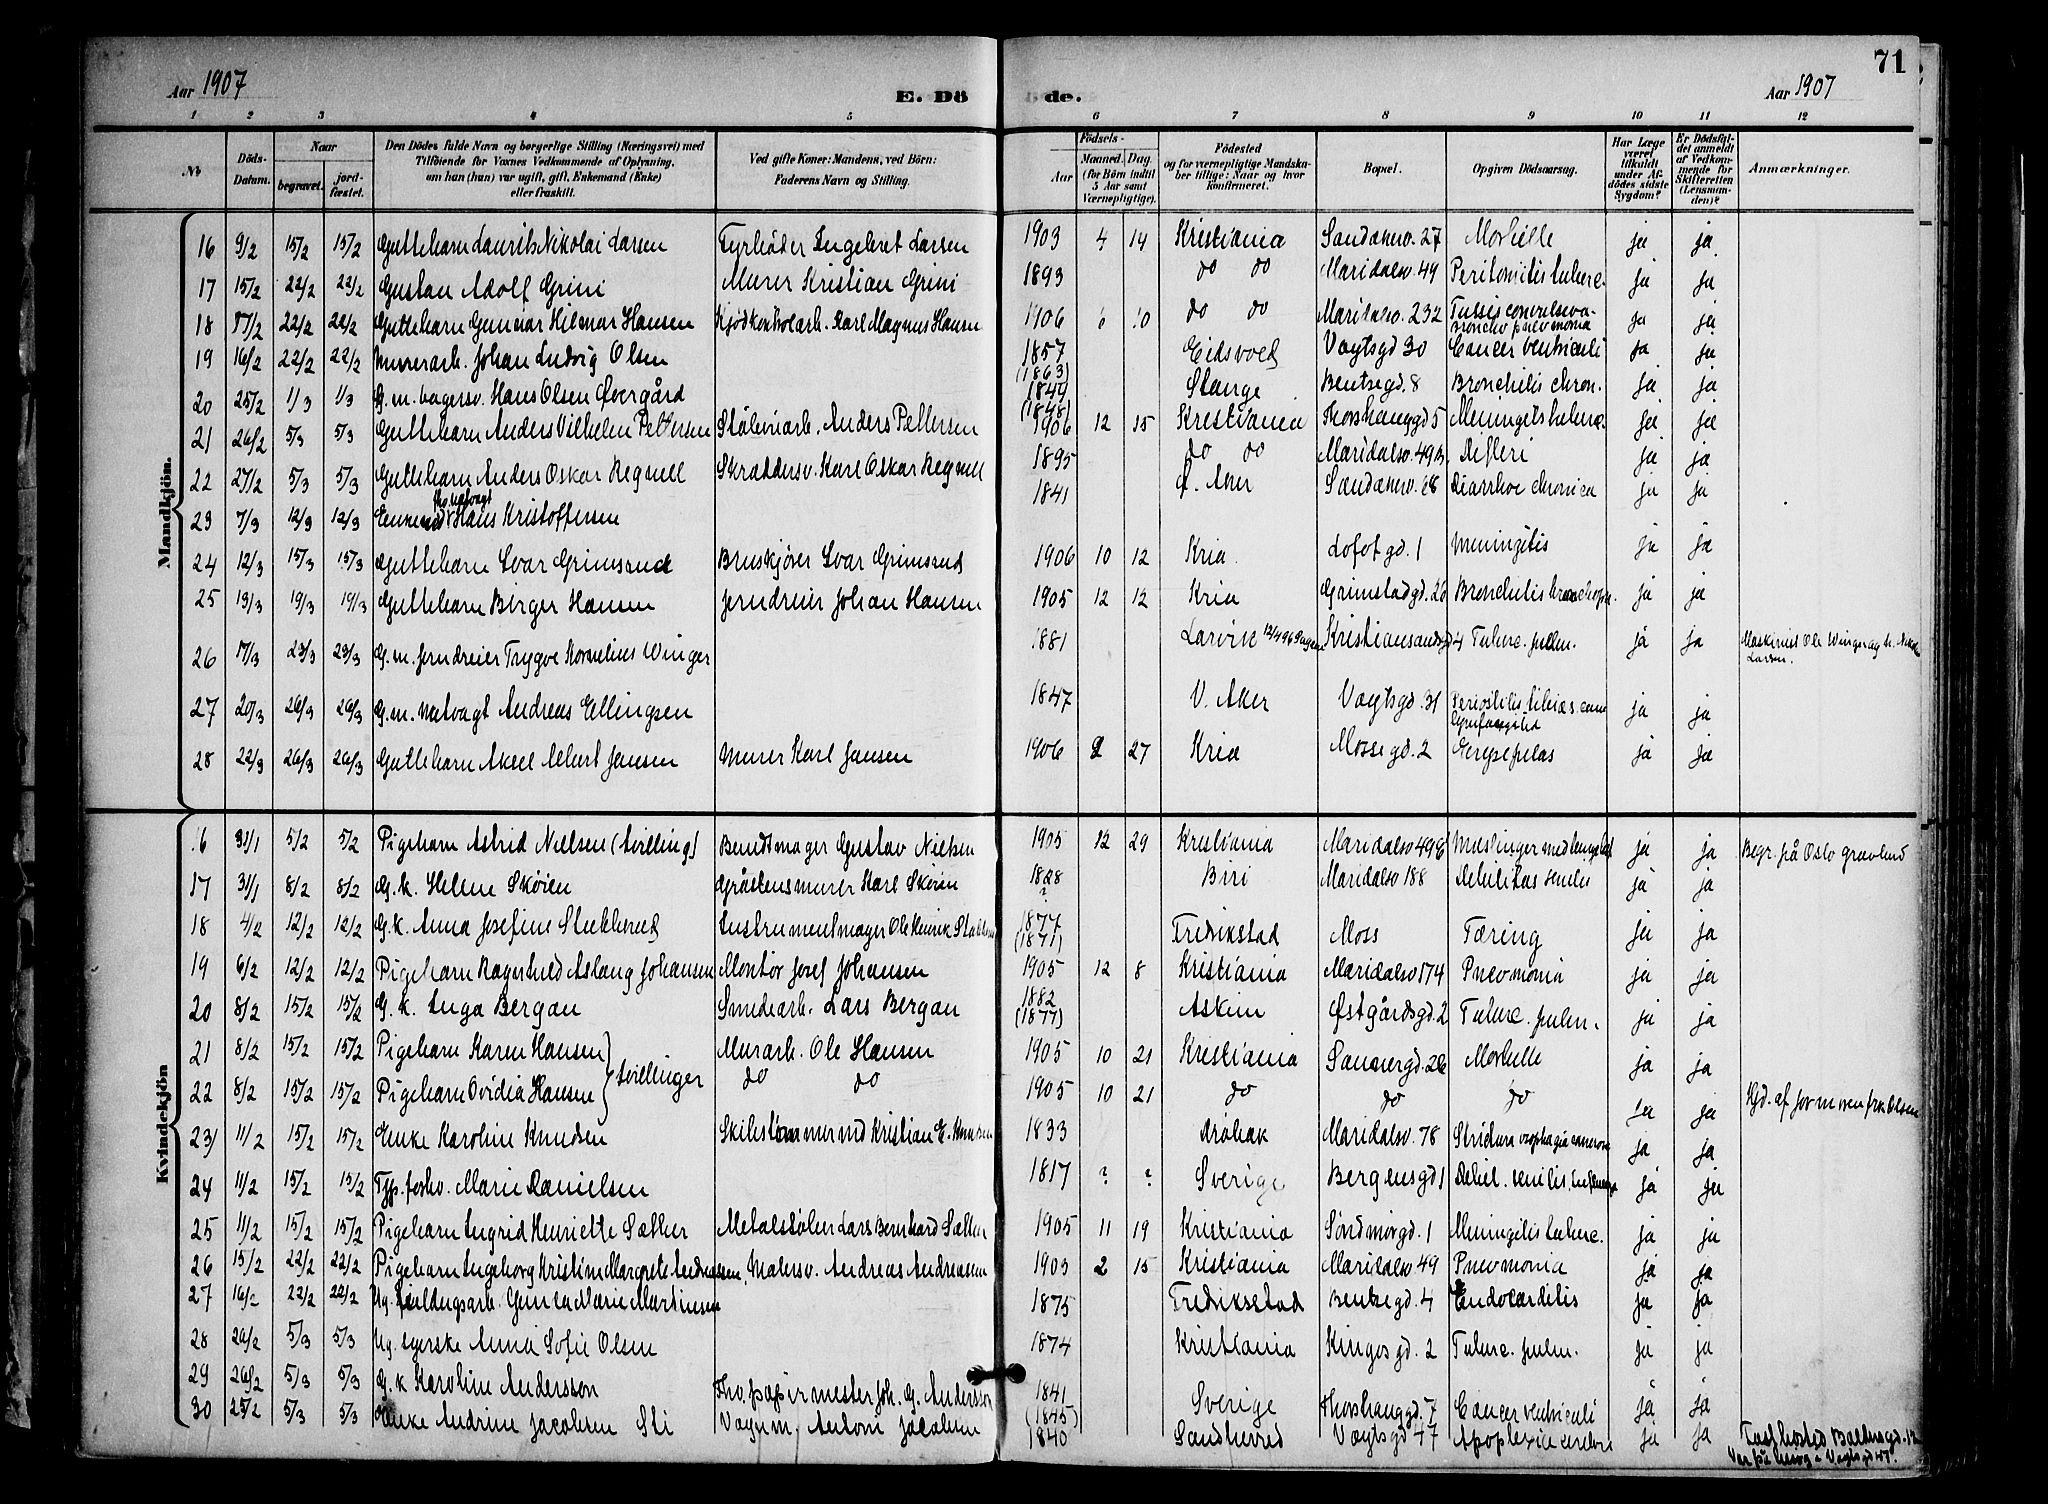 71
Aar 1907
E. Dö de.
Aar 1907
1 2 3 4 5 6 7 8 9 10 11 12
No
Döds-Datum.
Naar
begravet.
jordfæstet.
Den Dödes fulde Navn og borgerlige Stilling (Næringsvei) med
Tilföiende for Voxnes Vedkommende af Oplysning,
om han (hun) var ugift, gift, Enkemand (Enke)
eller fraskilt.
Ved gifte Koner: Mandens, ved Börn:
Faderens Navn og Stilling.
Födsels-
Aar
Maaned. Dag.
(for Börn indtil
5 Aar samt
Værnepligtige).
Födested
og for værnepligtige Mandskaber tillige: Naar og hvor
konfirmeret.
Bopæl.
Opgiven Dödsaarsag.
Har Læge
været
tilkaldt
under Afdödes sidste
Sygdom?
Er Dödsfaldet anmeldt
af Vedkommende for
Skifteretten
(Lensmanden)?
Anmærkninger.
Mandkjön.
16 9/2 15/2 15/2 Guttebarn Laurits Nikolai Larsen Fyrböder Ingebret Larsen 1903 4 14 Kristiania Sandakerv. 27 Morbille ja ja
17 15/2 22/2 22/2 Gustav Adolf Grini Murer Kristian Grini 1893 do do Maridalsv. 49 Peritonitis tuberc. ja ja
18 17/2 22/2 22/2 Guttebarn Gunnar Hilmar Hansen Kjödkontrolarb. Karl Magnus Hansen 1906 do do Maridalsv. 232 Tussis convulsiva-bronchopneumonia ja ja
19 16/2 22/2 22/2 Murerarb. Johan Ludvig Olsen 1857 (1863) Eidsvold Vogtsgd 30 Cancer ventriculi ja ja
20 25/2 1/3 1/3 G.m. bagersv. Hans Olsen Övergård 1844 (1848) Stange Bentsegd. 8 Bronchitis chron. ja ja
21 26/2 5/3 5/3 Guttebarn Anders Vilhelm Pettersen Stöberiarb. Anders Pettersen 1906 12 15 Kristiania Thorshauggd 5 Meningit tuberc. ja ja
22 27/2 5/3 5/3 Guttebarn Anders Oskar Regnell Skræddersv. Karl Oskar Regnell 1895 do do Maridalsv. 49B. Difteri ja ja
23 7/3 12/3 12/3 Enkemd Hans Kristoffersen 1841 Ö. Aker Sandakerv. 68 Diarrhoe chronica ja ja
24 12/3 15/3 15/3 Guttebarn Ivar Grimsrud Bruskjörer Ivar Grimsrud 1906 10 12 Kria. Lofotgd. 1 Meningitis ja ja
25 13/3 19/3 19/3 Guttebarn Birger Hansen Jerndreier Johan Hansen 1905 12 12 Kria Grimstadgd. 26 Bronchitis bronchopn. ja ja
26 17/3 23/3 23/3 G.m. Jerndreier Trygve Kornelius Winger 1881 Larvik Kristiansandsgd 4 Tuberc. pulm. ja ja Maskinist Ole Winger og h. Larsen.
27 20/3 26/3 26/3 G.m. natvagt Andreas Ellingsen 1847 V. Aker Vogtsgd. 31 Periostitis tibiae cum lymfangitis ja ja
28 22/3 26/3 26/3 Guttebarn Aksel Albert Jansen Murer Karl Jansen 1906 2 27 Kria Mossegd. 2 Erysipelas ja ja
Kvindekjön
16 31/1 5/2 5/2 Pigebarn Astrid Nielsen (tvilling) Bundtmager Gustav Nielsen 1905 12 29 Kristiania Maridalsv 49B Mæslinger med ja ja Begr. på Oslo gravlund
17 31/1 8/2 8/2 G.k. Helene Skøien Gråstensmurer Karl Skøien 1828 ? Biri Maridalsv 188 Debilitas senilis ja ja
18 4/2 12/2 12/2 G.k. Anna Josefine Stubberud Instrumentmager Ole Henrik 1877 (1871) Fredrikstad Moss Tæring ja ja
19 6/2 12/2 12/2 Pigebarn Ragnhild Aslaug Johansen Montör Josef Johansen 1905 12 8 Kristiania Maridalsv 174 Pnevmonia ja ja
20 8/2 15/2 15/2 G.k. Inga Bergan Smedearb. Lars Bergan 1882 (1877) Askim Østgårdsgd. 2 Tuberc. pulm. ja ja
21 8/2 15/2 15/2 Pigebarn Karen Hansen } tvillinger Murarb. Ole Hansen 1905 10 21 Kristiania Sannergd. 26 Morbille ja ja
22 8/2 15/2 15/2 Pigebarn Ovidia Hansen do do 1905 10 21 do do do ja ja Hjd. af jormoren frk. Olsen
23 11/2 15/2 15/2 Enke Karoline Knudsen Skibstömmermd Kristian E. Knudsen 1833 Dröbak Maridalsv. 78 Strictura oesophagi cancrosa ja ja
24 11/2 15/2 15/2 Fgp. forhv. Marie Danielsen 1817 ? ? Sverige Bergensgd 1 Debil. senilis, influenza ja ja
25 11/2 15/2 15/2 Pigebarn Ingrid Henriette Sæther Metalstöber Lars Bernhard Sæther 1905 11 19 Kristiania Söndmörgd. 1 Meningitis tuberc. ja ja
26 15/2 22/2 22/2 Pigebarn Ingeborg Kristine Margrete Andreassen, Malersv. Andreas Andreasen 1903 2 15 Kristiania Maridalsv 49 Pnevmonia ja ja
27 16/2 22/2 22/2 Ug. Gunda Marie Martinsen 1875 Fredriksstad Bentsegd. 4 Endocarditis ja ja
28 20/2 5/3 5/3 Ug. syerske Anna Sofie Olsen 1874 Kristiania Kingosgd. 2 Tuberc. pulm. ja ja
29 26/2 5/3 5/3 G.k Karoline Andersson Fhv. papirmester Joh. G. Andersson 1841 (1845) Sverige Thorshauggd. 7 Cancer ventriculi ja ja
30 25/2 5/3 5/3 Enke Andrine Jacobsen Sti Vognm. Antoni Jacobsen 1840 Sandhered Vogtsgd 47 Apoplexia cerebri ja ja Fast bosted 12
Var på besög i Vogtsgd 47.